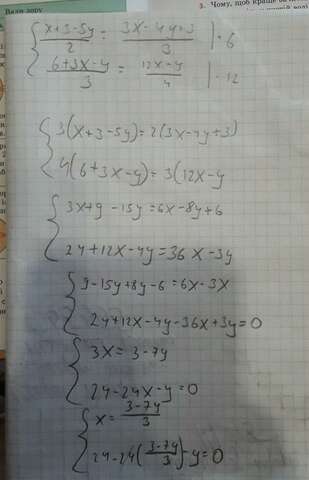 3. Чому, щоб краще
(x+3-5y)/2 = (3x-4y+3)/3 | · 6
(6+3x-y)/3 = (12x-y)/4 | · 12
3(x+3-5y)=2(3x-4y+3)
4(6+3x-y)=3(12x-y
3x+9-15y=6x-8y+6
24+12x-4y=36x-3y
9-15y+8y-6=6x-3x
24+12x-4y-36x+3y=0
3x=3-7y
24-24x-y=0
x=(3-7y)/3
24-24((3-7y)/3)-y=0